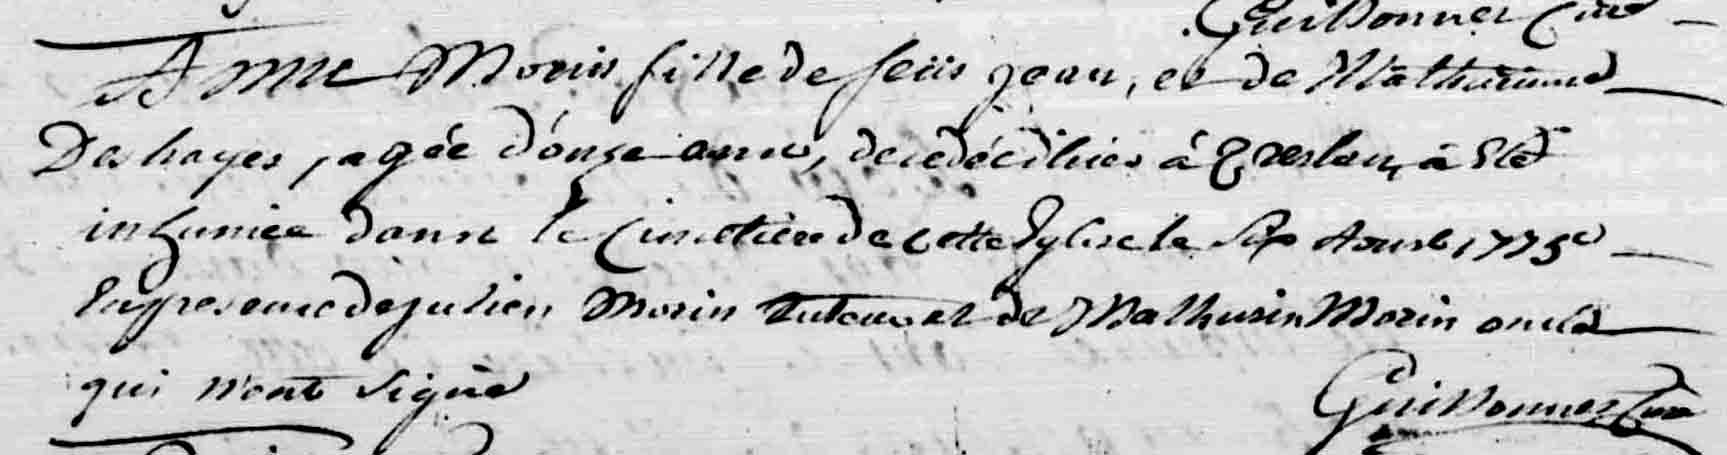 Guillonner Curé
Anne Morin fille de feus jean, et de Matharinne
Deshayes, agée d'onze anns, decedée d'hier à Breslau, à Eté
inhumée danns le Cimetiere de cette Eglise le Six Aoust 1775
En presence de julien Morin tuteur et de Mathurin Morin oncle
qui n'ont Signé
Guillonner Curé